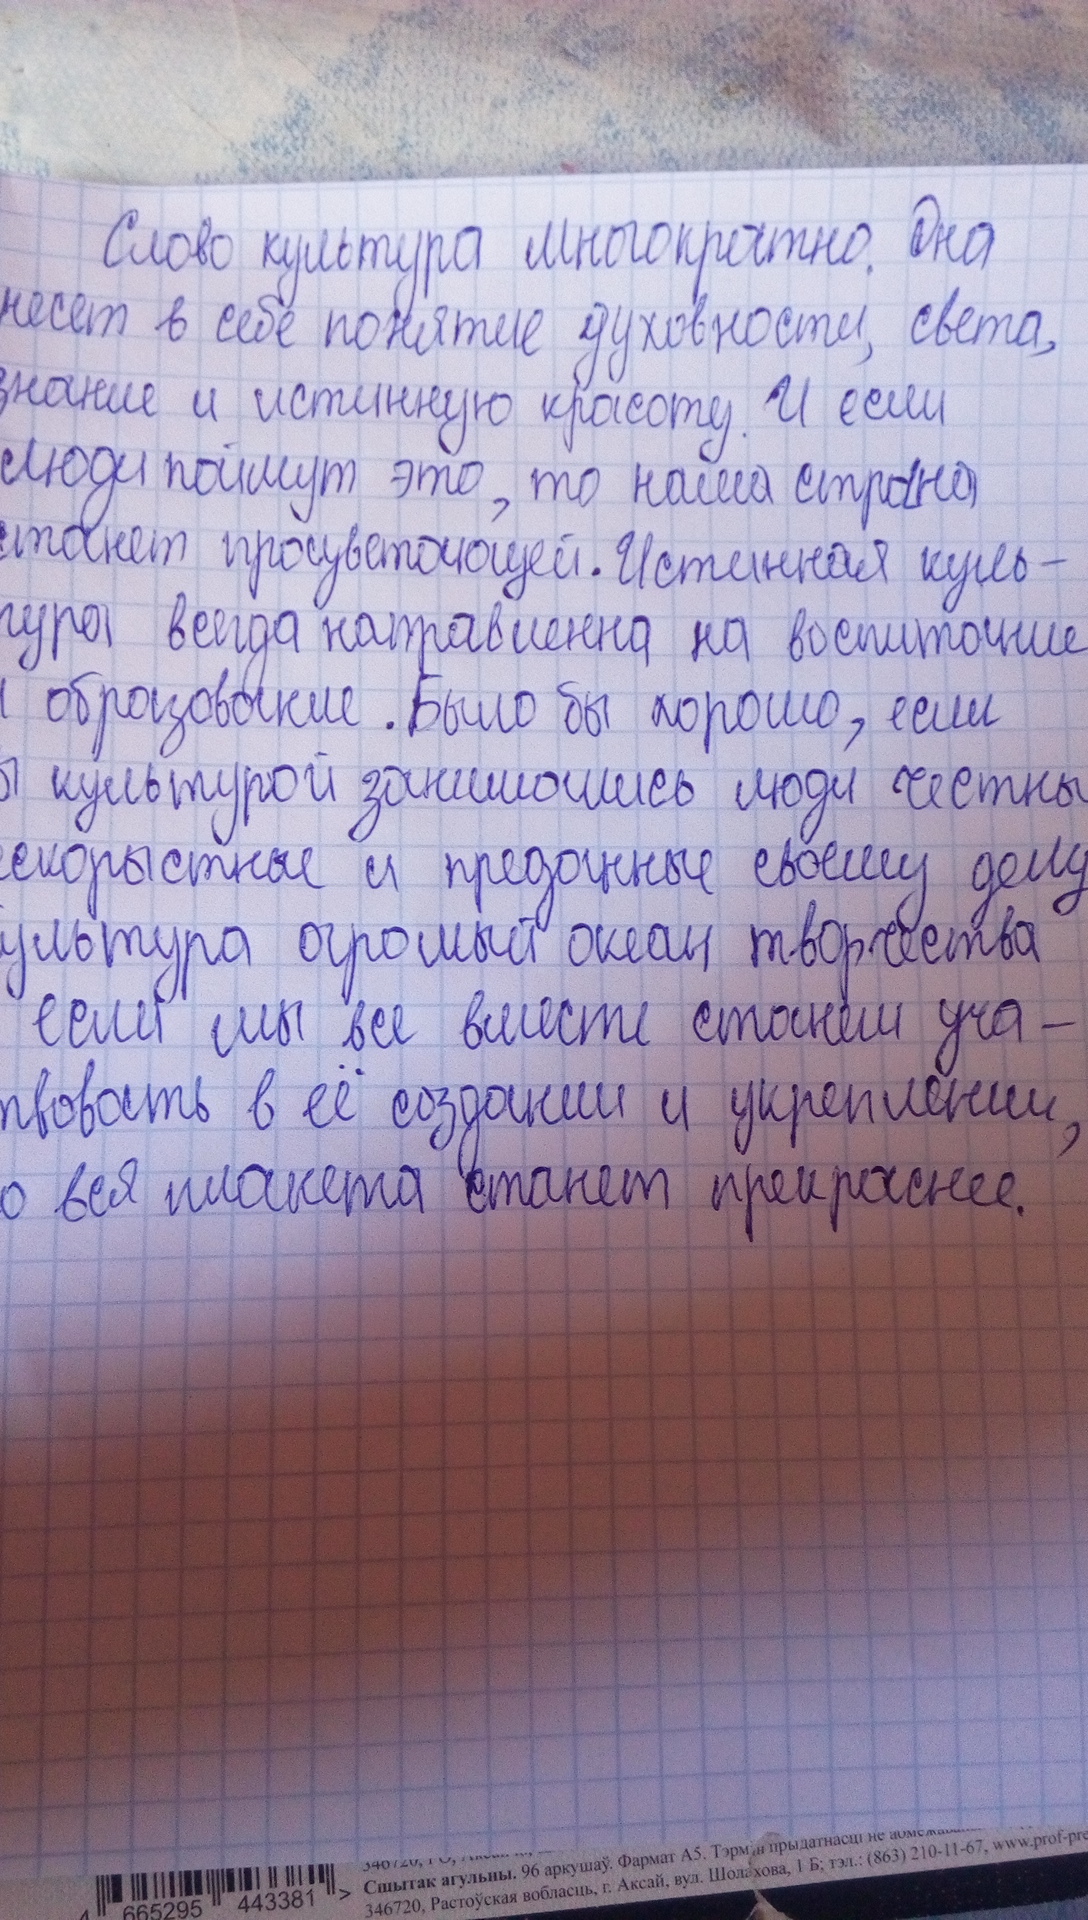 Слово культура многократно. Она
несет в себе понятие духовности, света,
знание и истинную красоту. И если
люди поймут это, то наша страна
станет процветающей. Истинная куль-
тура всегда направленна на воспитание
и образование. Было бы хорошо, если
бы культурой занимались люди честны
ескорыстные и преданные своему делу
ультура огромый океан творчества
если мы все вместе станем уча-
твовать в её создании и укреплении,
о вся планета станет прекраснее.
Сшытак агульны. 96 аркушаў. Фармат А5. Тэрмін прыдатнасці не
346720, Растоўская вобласць, г. Аксай, вул. Шолахова, 1 Б; тэл.: (863) 210-11-67, www.prof-pre
4 665295 443381 >